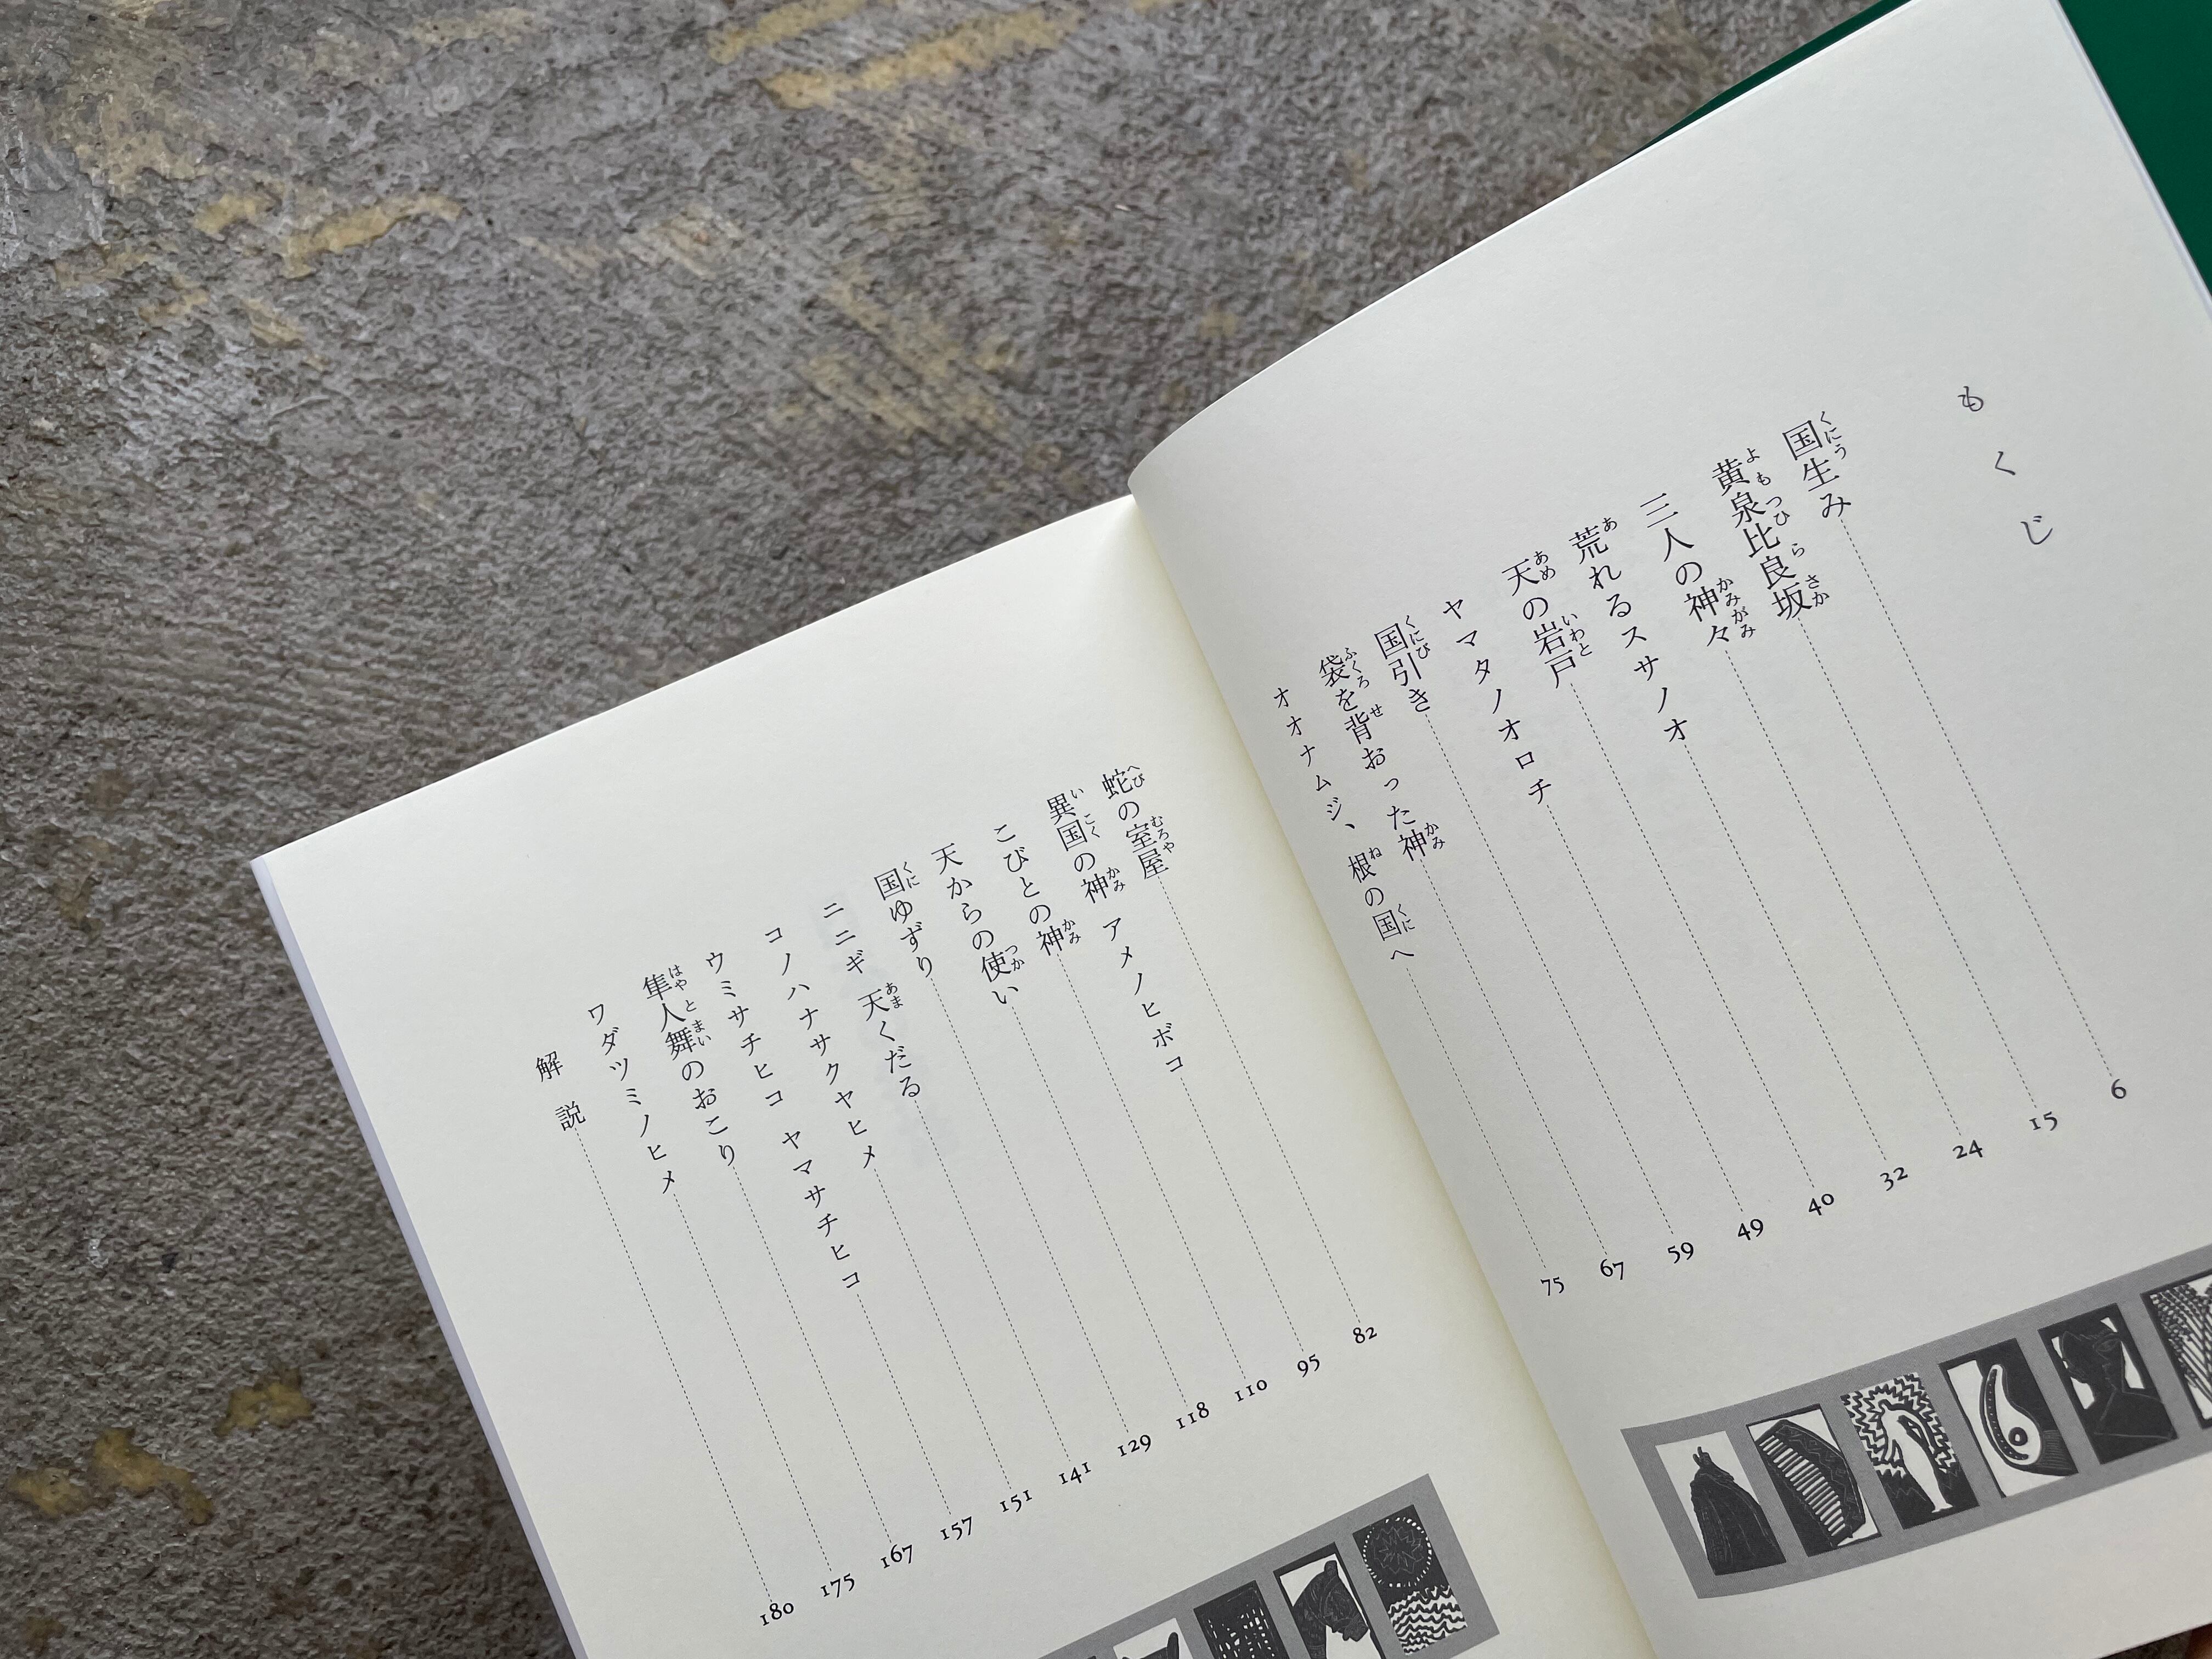 もくじ
くにう
国生み 6
よもつひらさか
黄泉比良坂 15
かみがみ
三人の神々 24
あ
荒れるスサノオ 32
あめ いわと
天の岩戸 40
ヤマタノオロチ 49
くにび
国引き 59
ふくろ せ かみ
袋を背おった神 67
ね くに
オオナムジ、根の国へ 75
へび むろや
蛇の室屋 82
いこく かみ
異国の神 アメノヒボコ 95
かみ
こびとの神 110
つか
天からの使い 118
くに
国ゆずり 129
あま
ニニギ 天くだる 141
コノハナサクヤヒメ 151
ウミサチヒコ ヤマサチヒコ 157
はやとまい
隼人舞のおこり 167
ワダツミノヒメ 175
解説 180